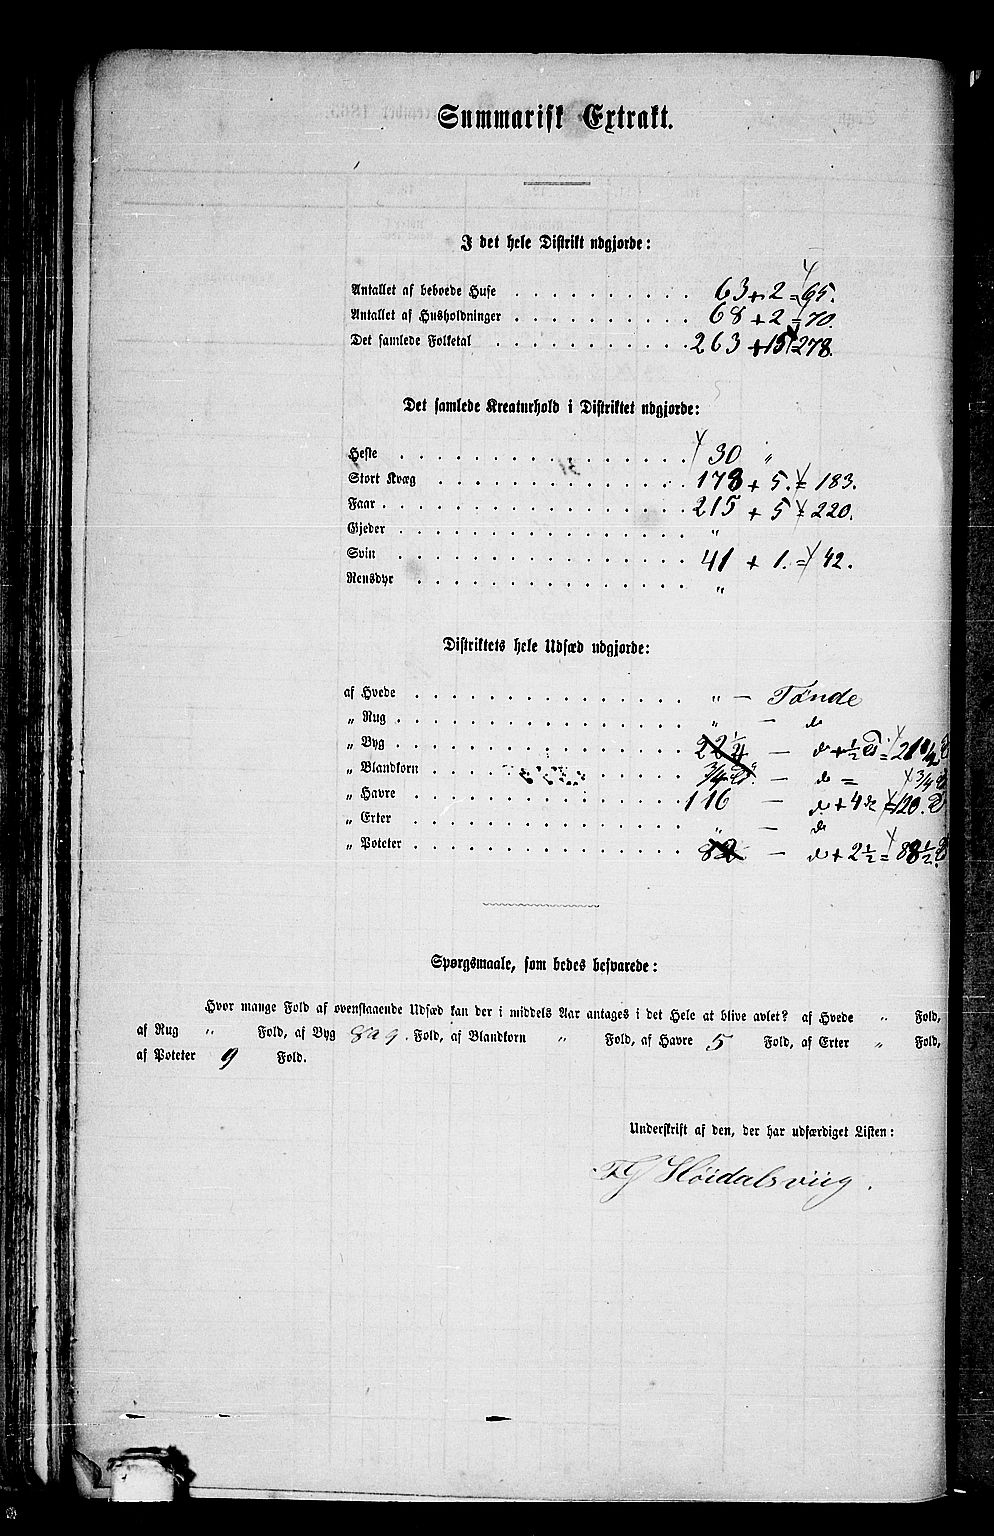 Summarisk Extrakt.
I det hele Distrikt udgjorde:
Antallet af beboede Huse . . . . . . . . . . 63 + 2 = 65.
Antallet af Husholdninger . . . . . . . . . . 68 + 2 = 70.
Det samlede Folketal . . . . . . . . . . . 263 + 15 = 278.
Det samlede Kreaturhold i Distriktet udgjorde:
Heste . . . . . . . . . . . . . . . . 30 "
Stort Kvæg . . . . . . . . . . . . . . 178 + 5. = 183.
Faar . . . . . . . . . . . . . . . . . 215 + 5 = 220.
Gjeder . . . . . . . . . . . . . . . "
Svin . . . . . . . . . . . . . . . . 41 + 1. = 42.
Rensdyr . . . . . . . . . . . . . . . "
Distriktets hele Udsæd udgjorde:
af Hvede . . . . . . . . . . . . . . . " — Tønde
" Rug . . . . . . . . . . . . . . . . " — do
" Byg . . . . . . . . . . . . . . . . 22 1/4 — do + 1/2 Td =
" Blandkorn 3/4 Td. — do = 3/4 Td
" Havre . . . . . . . . . . . . . . . 116 — do + 4 do = 120. Td
" Erter . . . . . . . . . . . . . . . " — do
" Poteter . . . . . . . . . . . . . . . — do + 2 1/2 = 88 1/2 Td
Spørgsmaale, som bedes besvarede:
Hvor mange Fold af ovenstaaende Udsæd kan der i middels Aar antages i det Hele at blive avlet? af Hvede " Fold,
af Rug " Fold, af Byg 8 a 9. Fold, af Blandkorn " Fold, af Havre 5 Fold, af Erter " Fold,
af Poteter 9 Fold.
Underskrift af den, der har udfærdiget Listen:
Høidalsviig.